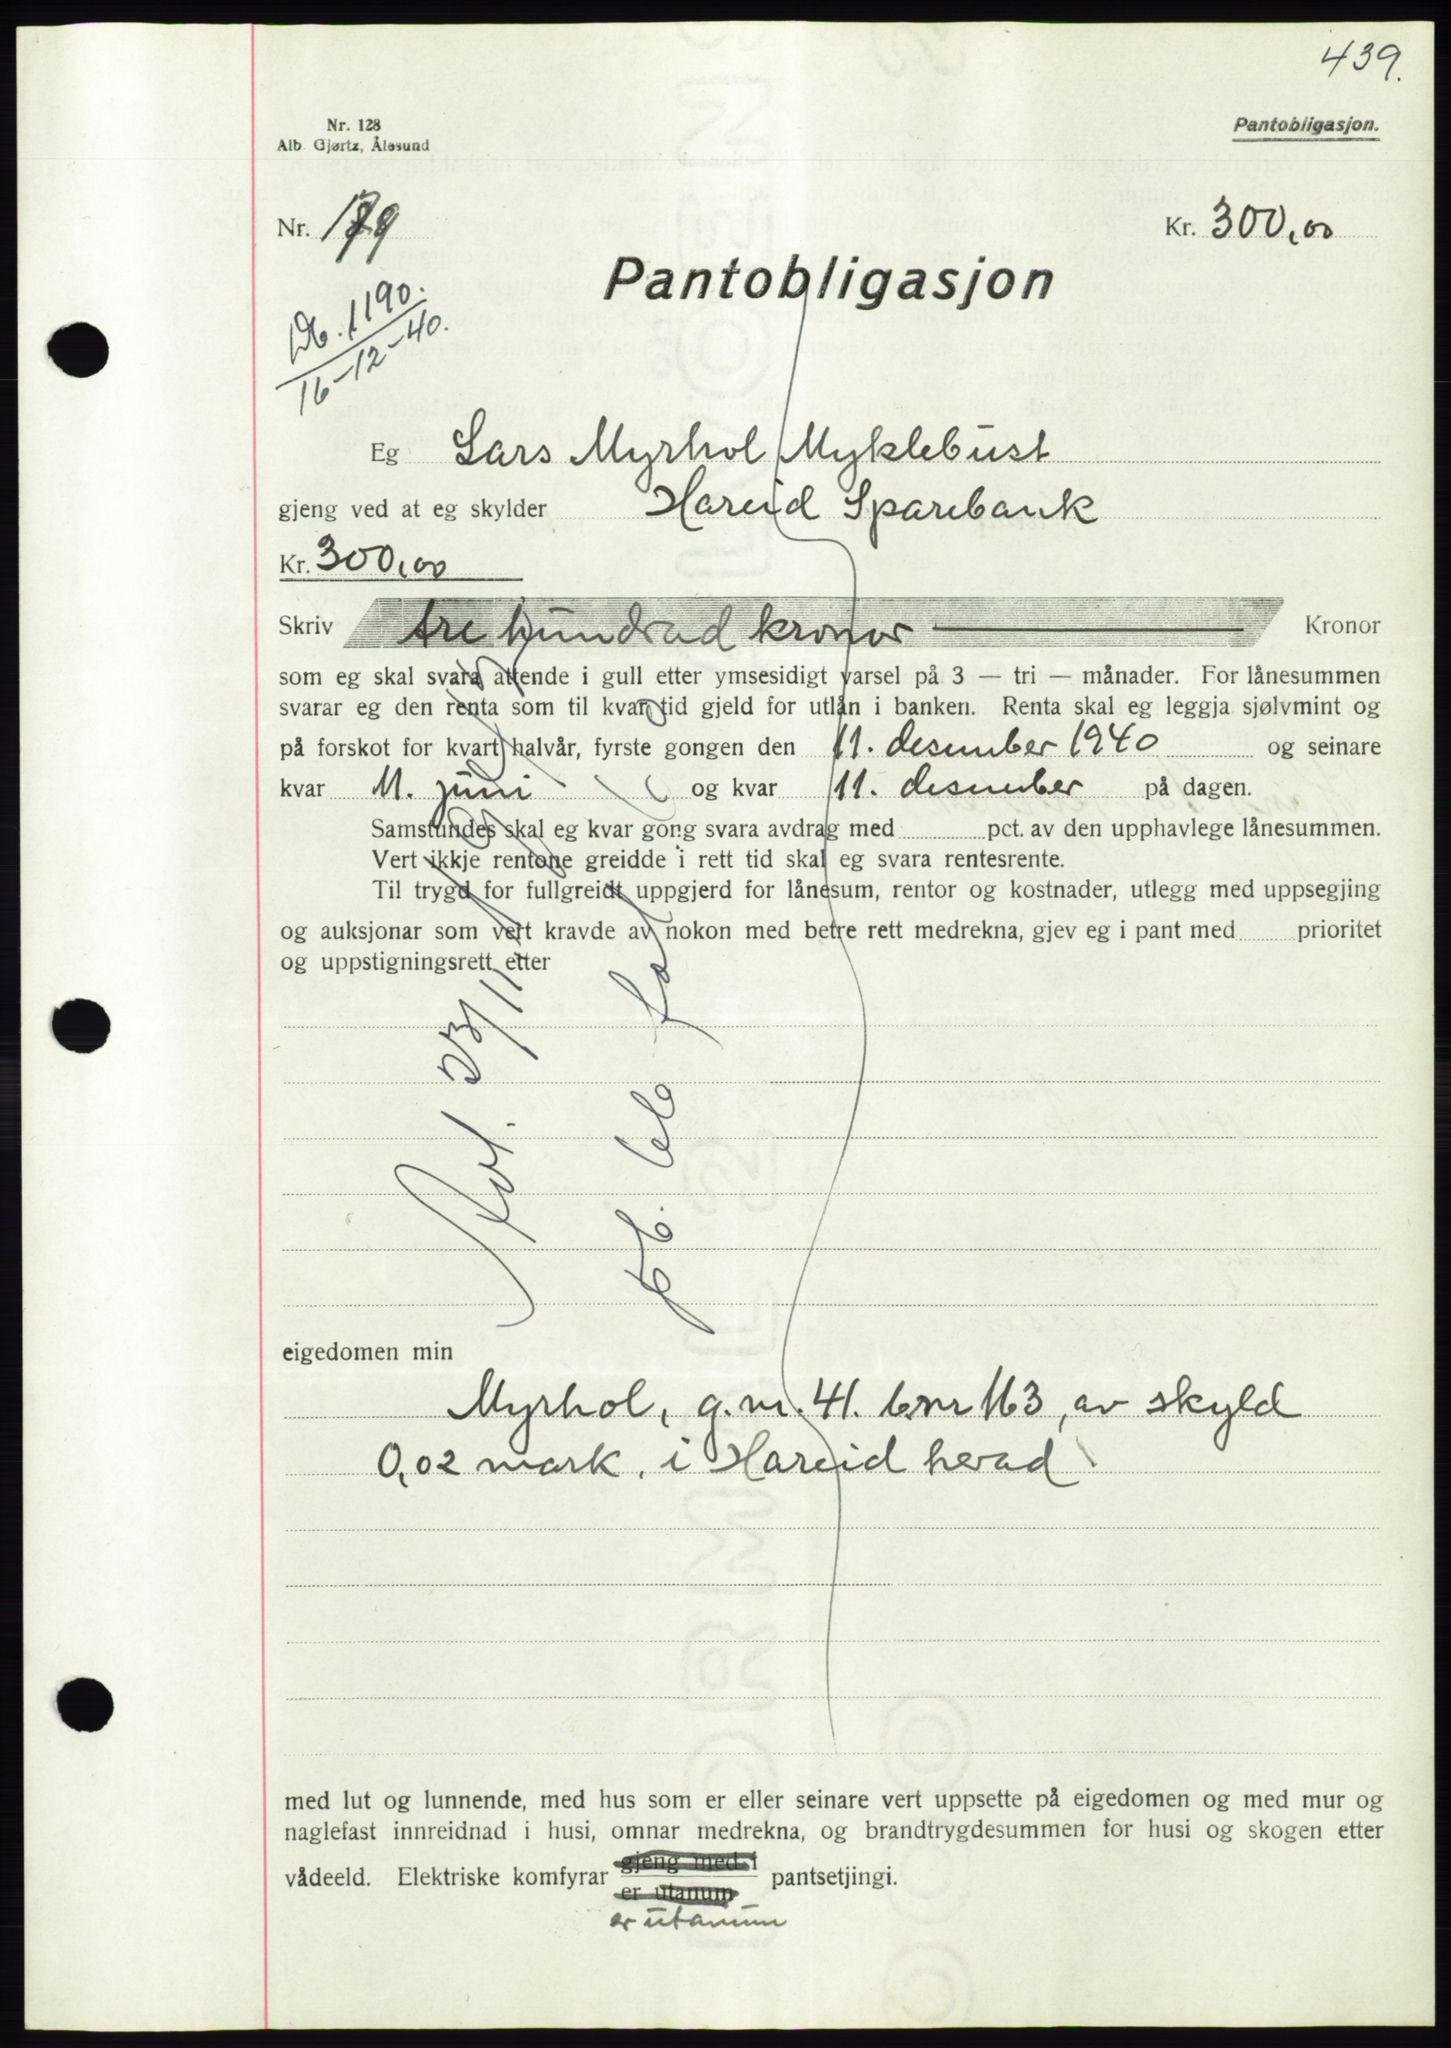 439.
Nr. 128
Alb. Gjørtz, Ålesund
Pantobligasjon.
Nr.
Kr. 300,00
Pantobligasjon
Db. 1190.
16-12-40.
Eg Lars Myrhol Myklebust
gjeng ved at eg skylder Hareid Sparebank
Kr. 300,00
Skriv tre hundrad kronor Kronor
som eg skal svara attende i gull etter ymsesidigt varsel på 3 — tri — månader. For lånesummen
svarar eg den renta som til kvar tid gjeld for utlån i banken. Renta skal eg leggja sjølvmint og
på forskot for kvart halvår, fyrste gongen den 11. desember 1940 og seinare
kvar 11. juni og kvar 11. desember på dagen.
Samstundes skal eg kvar gong svara avdrag med pct. av den upphavlege lånesummen.
Vert ikkje rentone greidde i rett tid skal eg svara rentesrente.
Til trygd for fullgreidt uppgjerd for lånesum, rentor og kostnader, utlegg med uppsegjing
og auksjonar som vert kravde av nokon med betre rett medrekna, gjev eg i pant med prioritet
og uppstigningsrett etter
eigedomen min
Myrhol, g.nr. 41. b.nr 163, av skyld
0,02 mark. i Hareid herad
med lut og lunnende, med hus som er eller seinare vert uppsette på eigedomen og med mur og
naglefast innreidnad i husi, omnar medrekna, og brandtrygdesummen for husi og skogen etter
vådeeld. Elektriske komfyrar gjeng med i pantsetjingi.
er utanum
er utanum